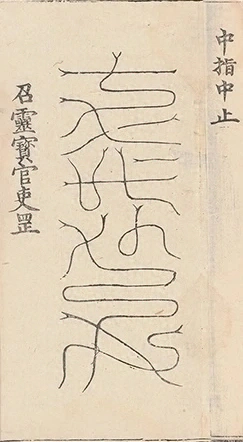 中指中止
召靈寶官吏罡